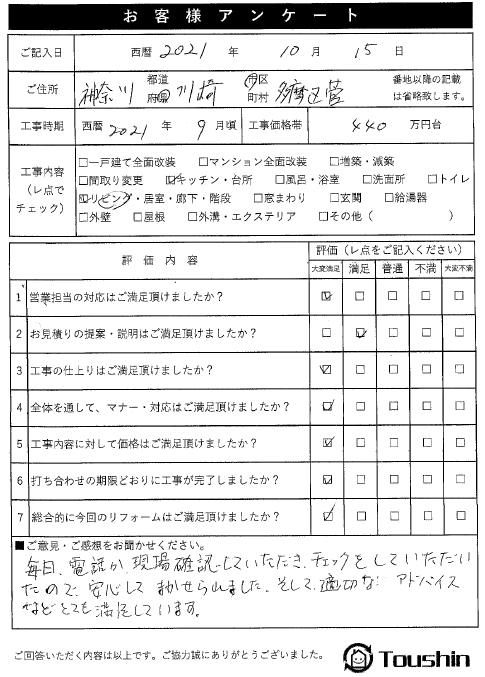 お客様アンケート
ご記入日 西暦 2021 年 10 月 15 日
ご住所 神奈川 都道府県 川崎 市区町村 多摩区菅 番地以降の記載は省略致します。
工事時期 西暦 2021 年 9 月頃 工事価格帯 440 万円台
工事内容（レ点でチェック）
□一戸建て全面改装 □マンション全面改装 □増築・減築
□間取り変更 ☑キッチン・台所 □風呂・浴室 □洗面所 □トイレ
☑リビング・居室・廊下・階段 □窓まわり □玄関 □給湯器
□外壁 □屋根 □外溝・エクステリア □その他（ ）
評価内容 評価（レ点をご記入ください）
大変満足 満足 普通 不満 大変不満
1 営業担当の対応はご満足頂けましたか？ ☑ □ □ □ □
2 お見積りの提案・説明はご満足頂けましたか？ □ ☑ □ □ □
3 工事の仕上りはご満足頂けましたか？ ☑ □ □ □ □
4 全体を通して、マナー・対応はご満足頂けましたか？ ☑ □ □ □ □
5 工事内容に対して価格はご満足頂けましたか？ ☑ □ □ □ □
6 打ち合わせの期限どおりに工事が完了しましたか？ ☑ □ □ □ □
7 総合的に今回のリフォームはご満足頂けましたか？ ☑ □ □ □ □
■ご意見・ご感想をお聞かせください。
毎日、電話か、現場確認していただき、チェックをしていただい
たので、安心してまかせられました。そして、適切なアドバイス
などとても満足しています。
ご回答いただく内容は以上です。ご協力誠にありがとうございました。
Toushin